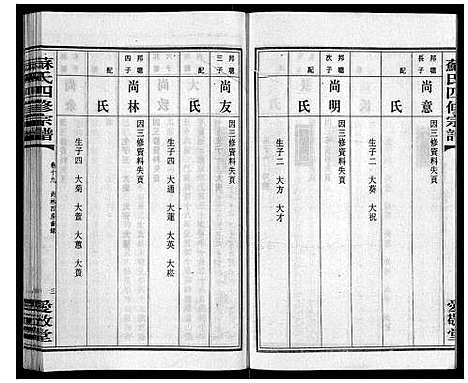 蘇氏四修宗譜
邦聰長子
尚意
配
氏
因三修資料失頁
生子二 大葵 大祝
邦聰次子
尚明
配
氏
因三修資料失頁
生子二 大方 大才
愛敬堂
邦聰三子
尚友
配
氏
因三修資料失頁
生子四 大通 大蓮 大英 大崧
邦聰四子
尚林
配
氏
因三修資料失頁
生子四 大菊 大萱 大蕙 大蕢
蘇氏四修宗譜
卷十九
三
愛敬堂